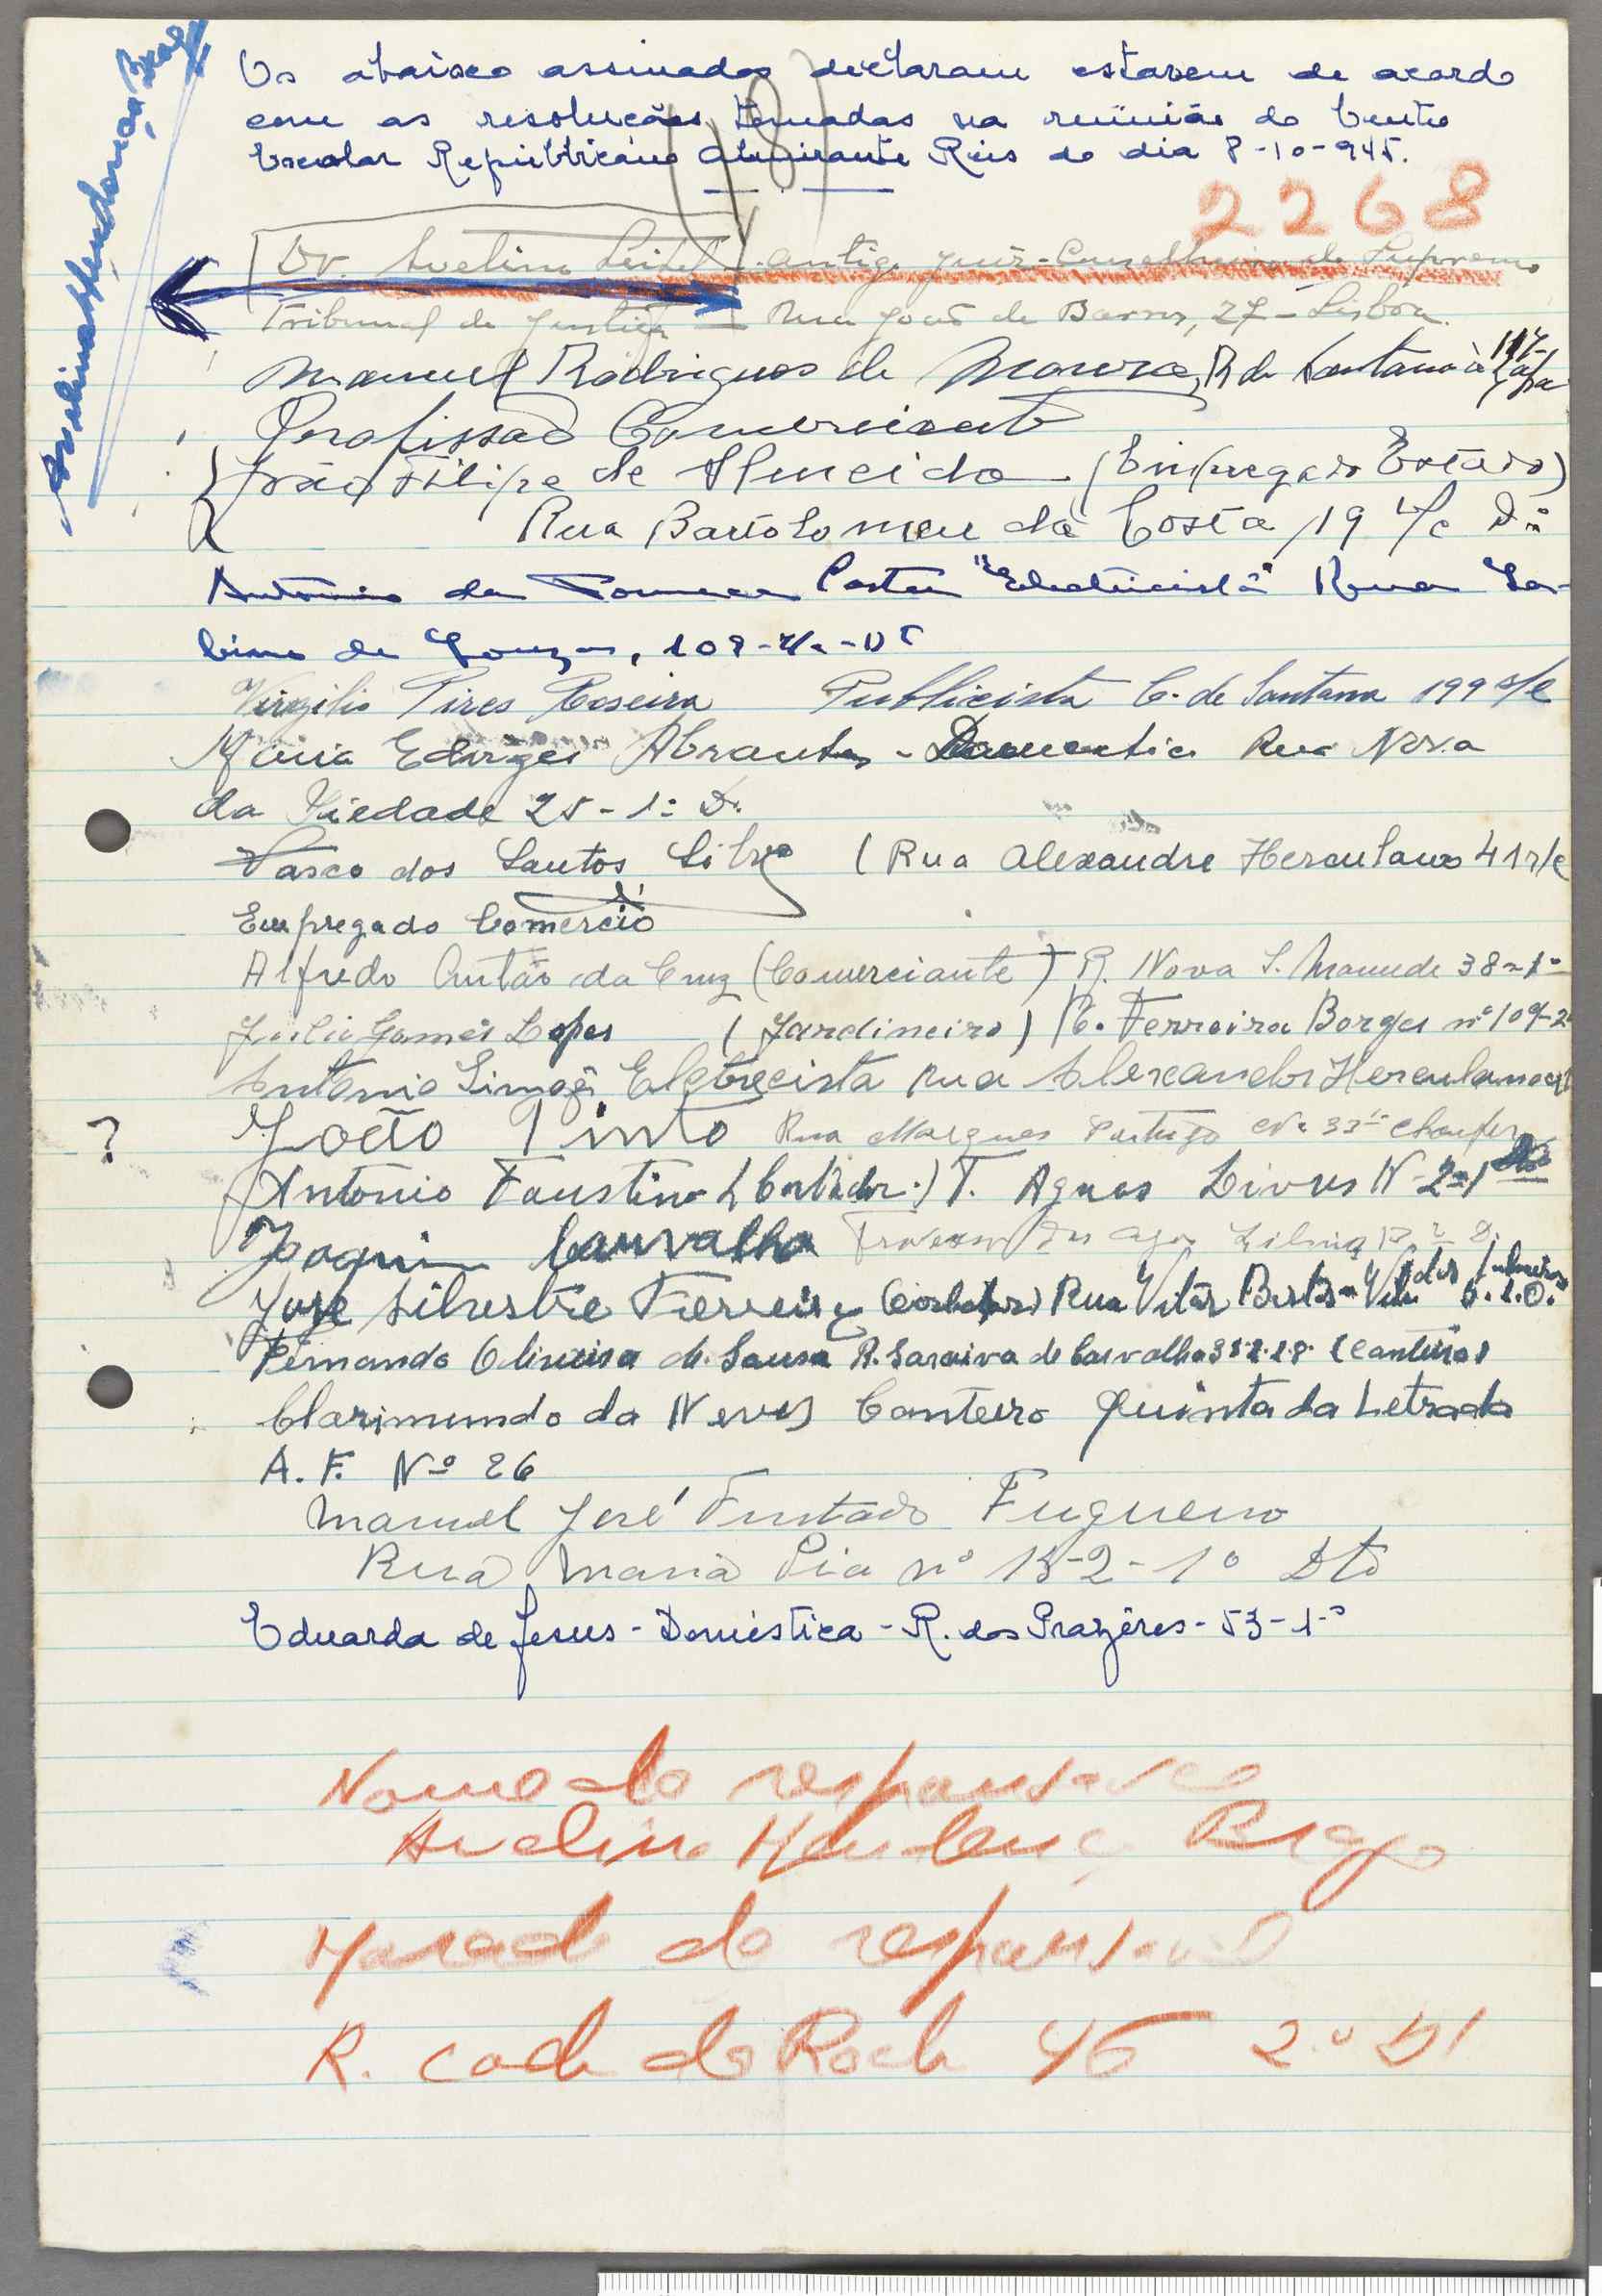 Avelino Mendonça Braga
Os abaixo assinados declaram estarem de acordo
com as resoluções tomadas na reünião do Centro
Escolar Republicano Almirante Reis do dia 8-10-945.
(18)
2268
Dr. Avelino Leite - antigo juiz-Conselheiro do Supremo
Tribunal de Justiça — Rua João de Barros, 27 - Lisboa.
Manuel Rodrigues de Moura, R. de Santana à Lapa 117-
Profissão Comerciante
João Filipe de Almeida (Empregado Estado)
Rua Bartolomeu da Costa, 19 r/c D.to
Antonio da Fonseca Costa "Electricista" Rua Sa-
bino de Sousa, 108-r/c-Dt
Virgilio Pires Roseira Publicista C. de Santana 199 r/c
Maria Edwiges Abrantes - Domestica Rua Nova
da Piedade 25 - 1º D.
Vasco dos Santos Silva (Rua Alexandre Herculano 41 r/c
Empregado Comercio
Alfredo Antão da Cruz (Comerciante) R. Nova S. Mamede 38-1º
Julio Gomes Lopes (Jardineiro) R. Ferreira Borges nº 109-2
Antonio Simões Eletrecista Rua Alexandre Herculano
? João Pinto Rua Marques Nº 33 Chaufer
Antonio Faustino T. Aguas Livres Nº 2-1
Joaquim Carvalho
José Silvestre Ferreira Rua Vitor Bastos
Fernando Oliveira de Sousa R. Saraiva de Carvalho (Canteiro)
Clarimundo da Neves Canteiro Quinta da Letrada
A. F. Nº 26
Manuel José Furtado Fugueiro
Rua Maria Pia nº 13-2-1º Dto
Eduarda de Jesus - Doméstica - R. dos Prazêres - 53 - 1.º
Nome do responsavel
Avelino Mendonça Braga
Morada do responsavel
R. da Rocha 46 2.º Dt